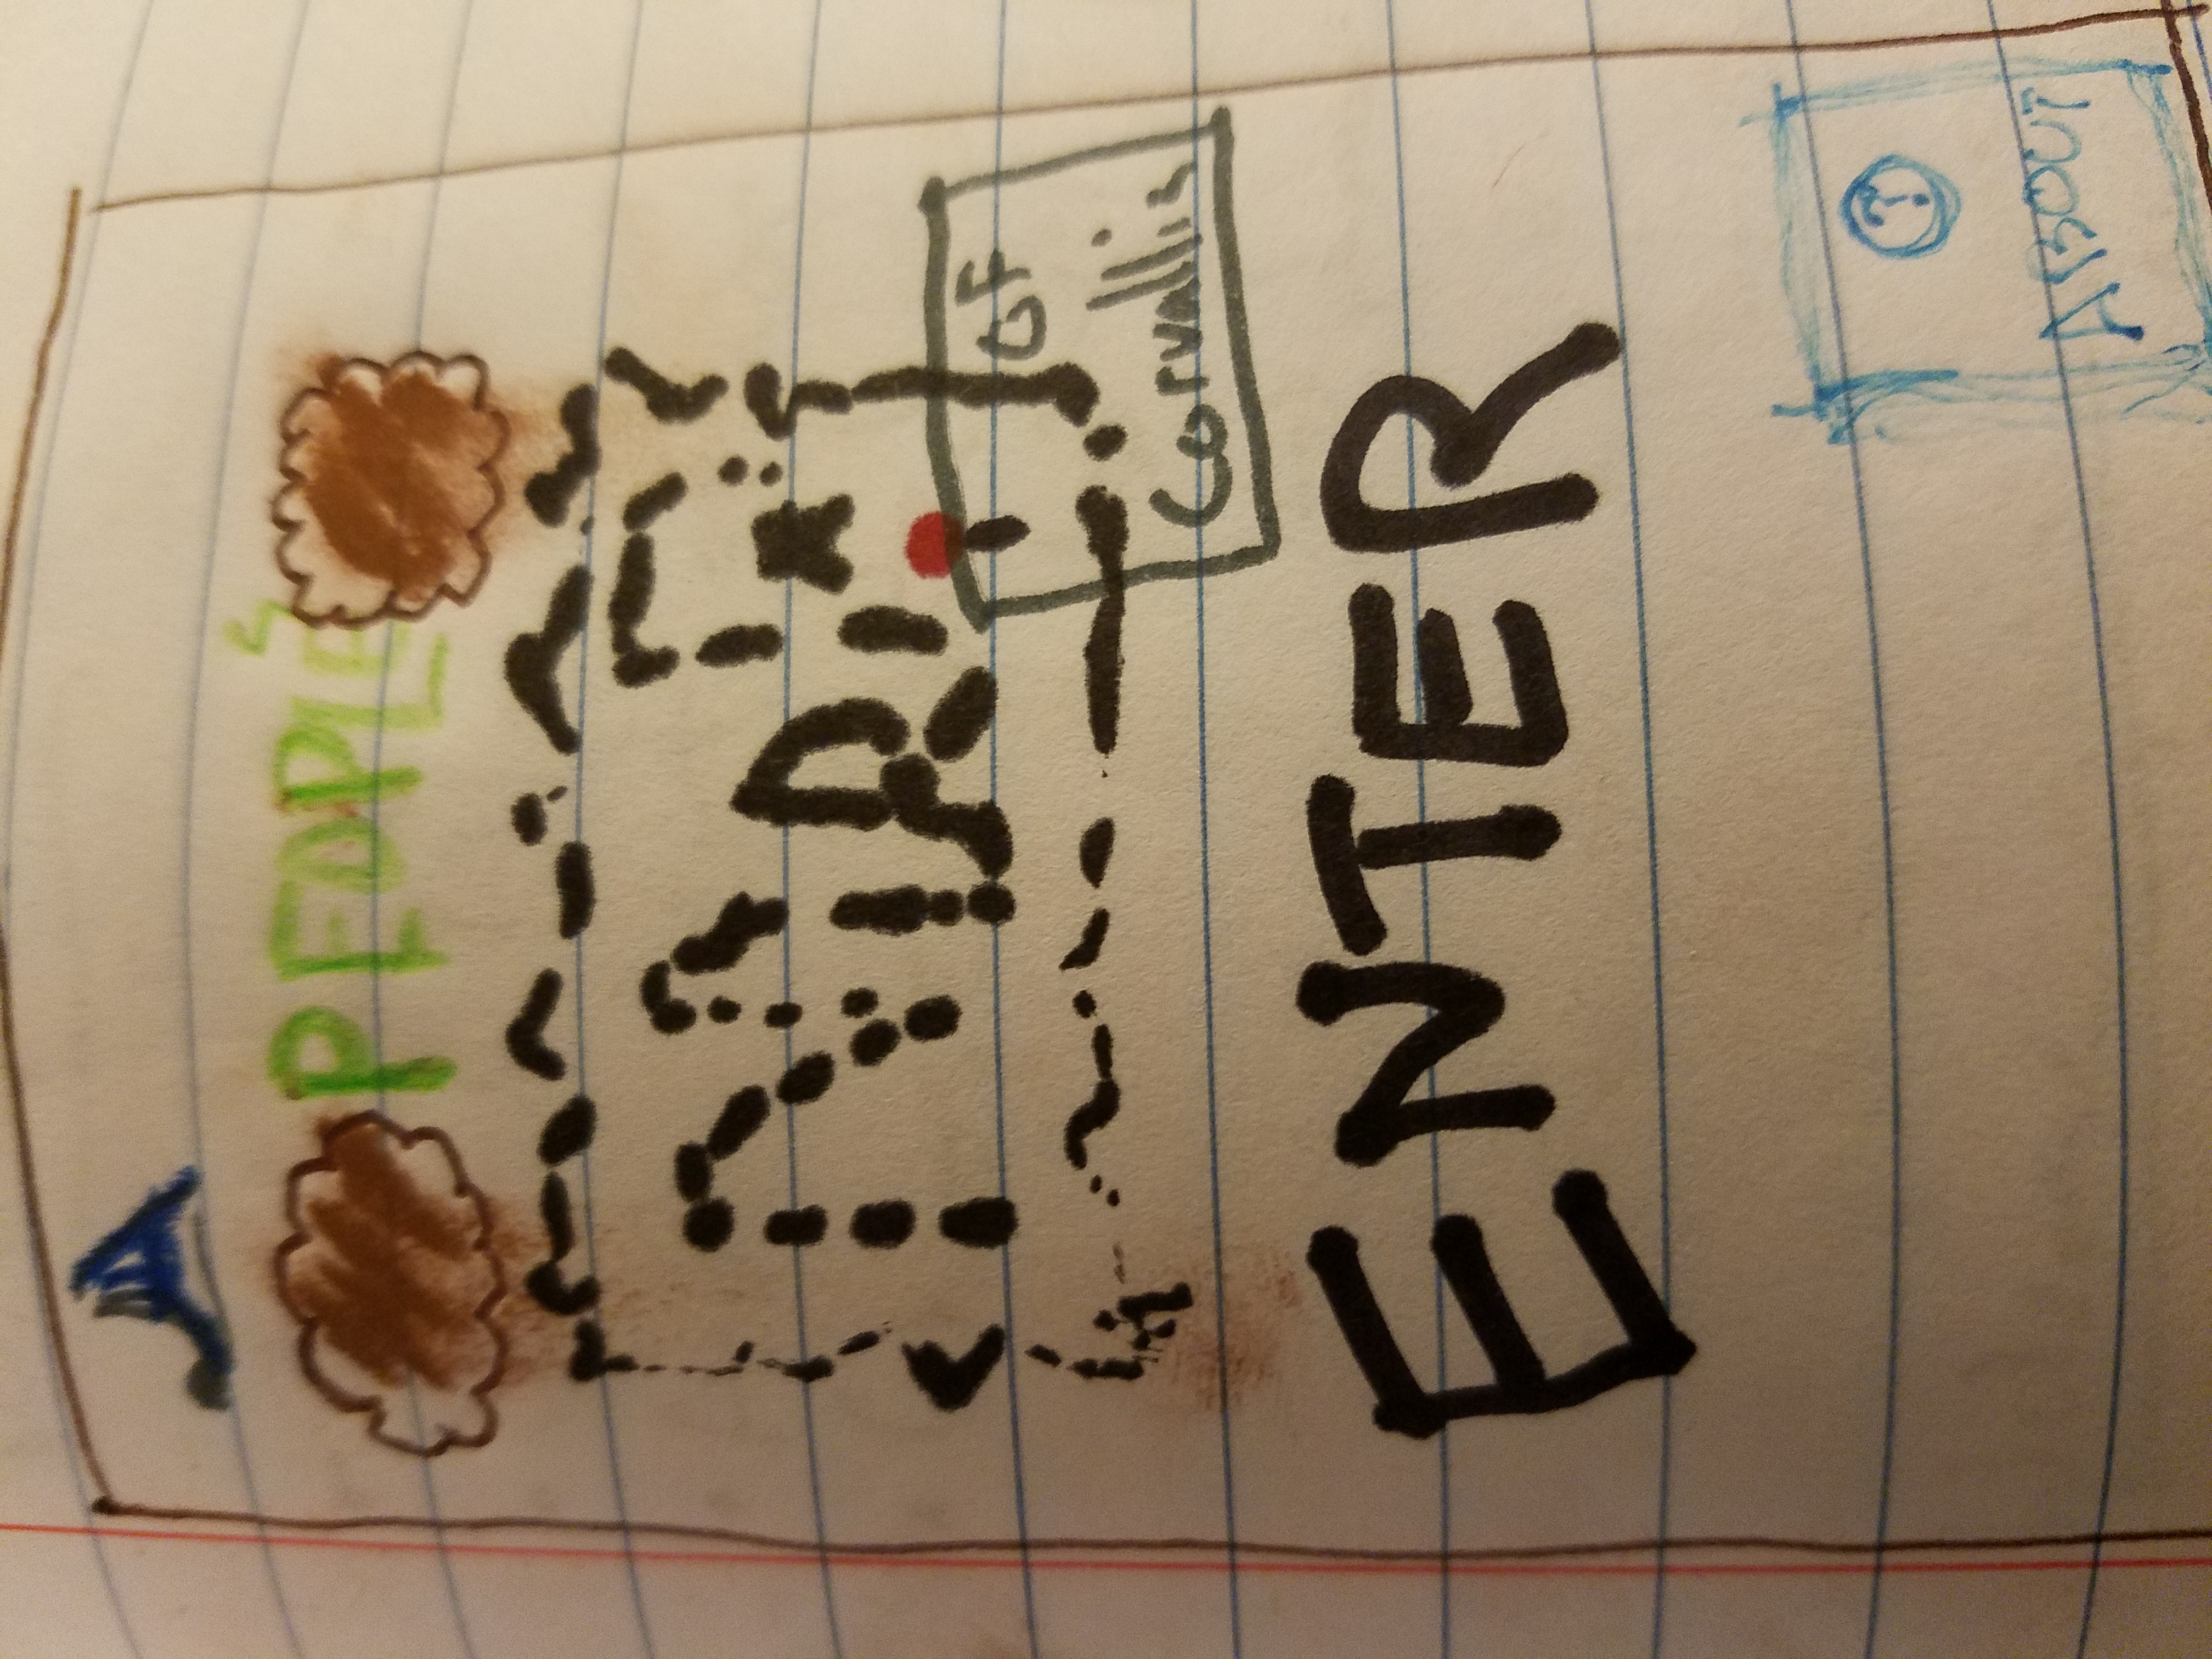 A
PEOPLE'S
MAP
OF
Corvallis
ENTER
?
ABOUT